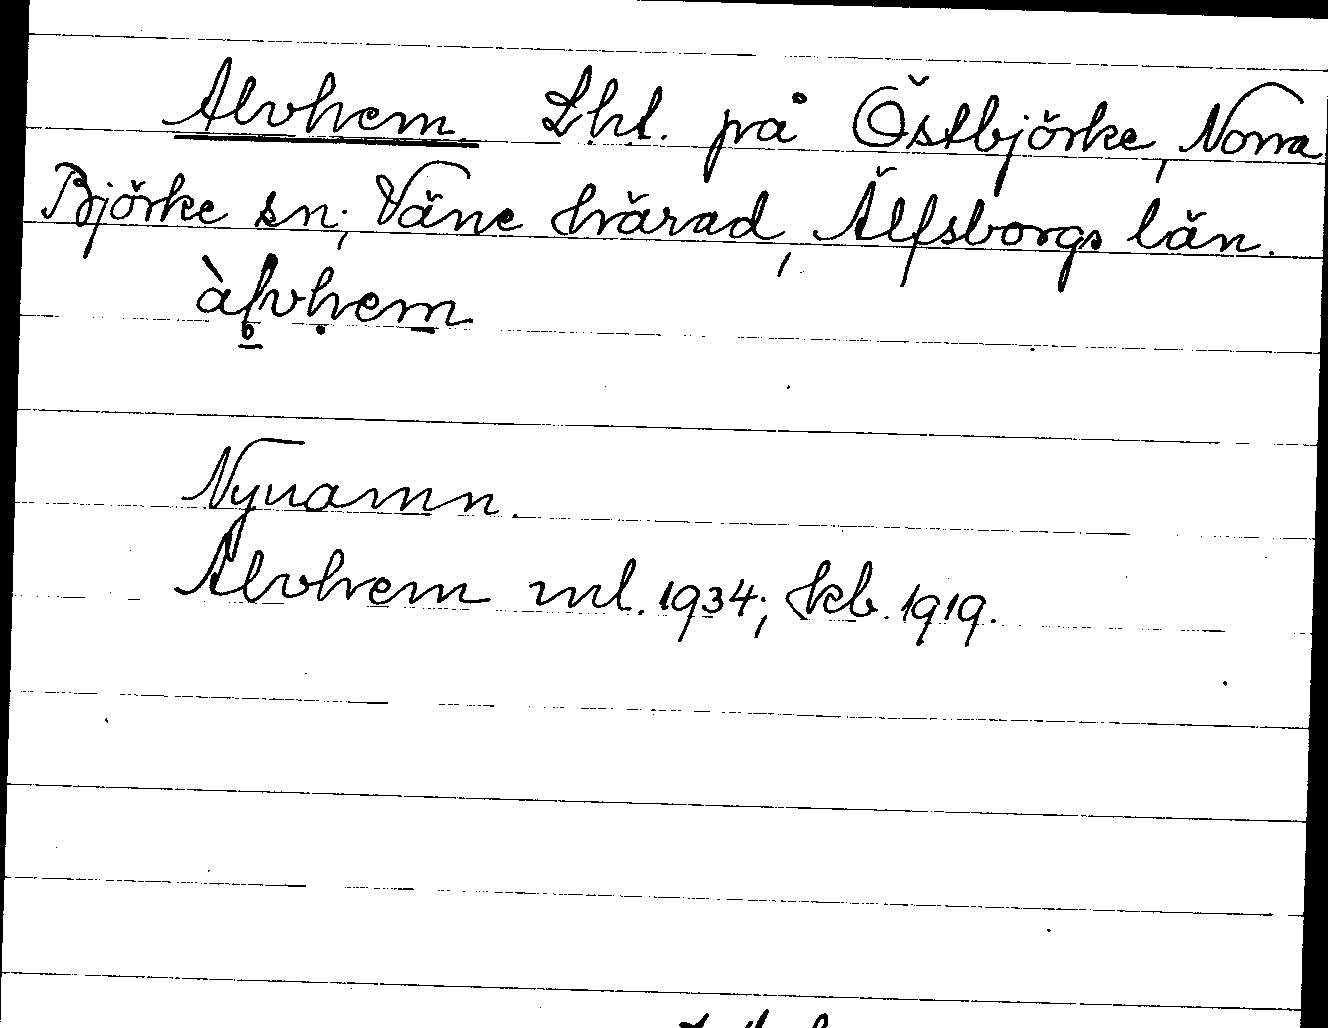 Alvhem. Lht. på Östbjörke, Norra
Björke sn; Väne härad, Älfsborgs län.
àlvhem
Nynamn.
Alvhem ml. 1934; kb. 1919.